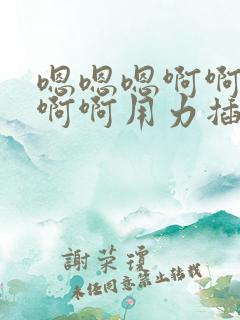 嗯嗯嗯啊啊
啊啊用力插
謝荣琼
未经同意禁止转载